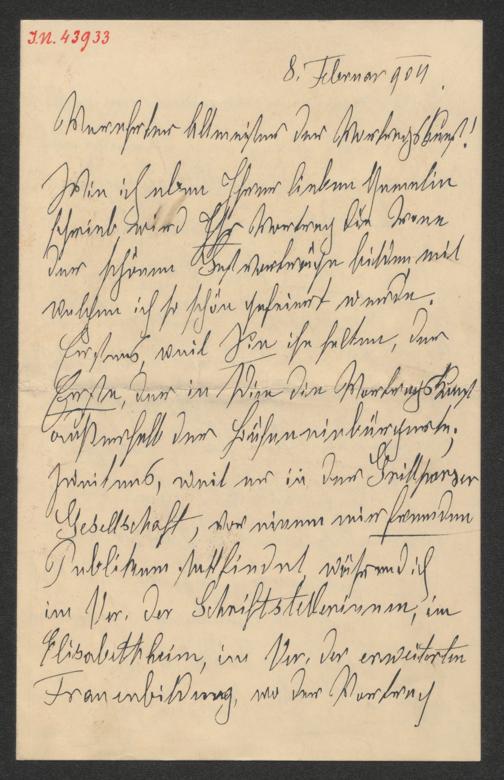 I.N. 43933
8. Februar 904.
Verehrter Altmeister der Vortragskunst!
Wie ich eben Ihrer lieben Gemalin
schrieb wird Ihr Vortrag die Krone
der schönen Festvorträge bilden mit
welchen ich so schön gefeiert werde.
Erstens, weil Sie ihn halten, der
Erste, der in Wien die Vortragskunst
außerhalb der Bühne einbürgerte;
zweitens, weil er in der Grillparzer
Gesellschaft, vor einem mir fremden
Publikum stattfindet während ich
im Ver. der Schriftstellerinnen, im
Elisabethheim, im Ver. der erweiterten
Frauenbildung, wo der Vortrag